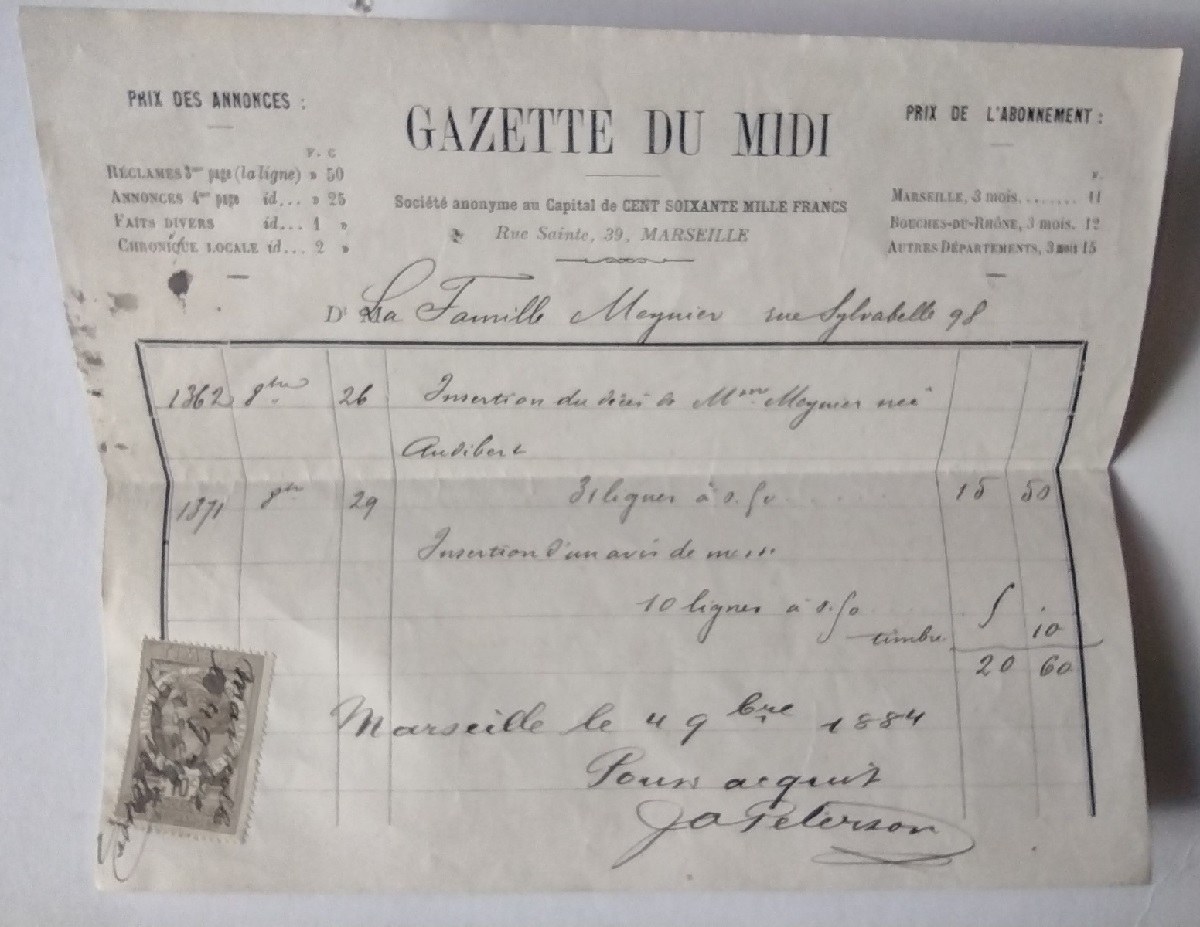 PRIX DES ANNONCES :
F. C
RÉCLAMES 3me page (la ligne) » 50
ANNONCES 4me page id... » 25
FAITS DIVERS id... 1 »
CHRONIQUE LOCALE id... 2 »
GAZETTE DU MIDI
Société anonyme au Capital de CENT SOIXANTE MILLE FRANCS
Rue Sainte, 39, MARSEILLE
PRIX DE L'ABONNEMENT :
F.
MARSEILLE, 3 mois........ 11
BOUCHES-DU-RHÔNE, 3 mois. 12
AUTRES DÉPARTEMENTS, 3 mois 15
Dt La Famille Meynier rue Sylvabelle 98
1362 8bre 26 Insertion du décès de Mme Meynier née
Audibert
1371 8bre 29 31 lignes à 0.50 15 50
Insertion d'un avis de messe
10 lignes à 0.50 5
timbre 10
20 60
Marseille le 4 9bre 1884
Pour acquit
J A Peterson